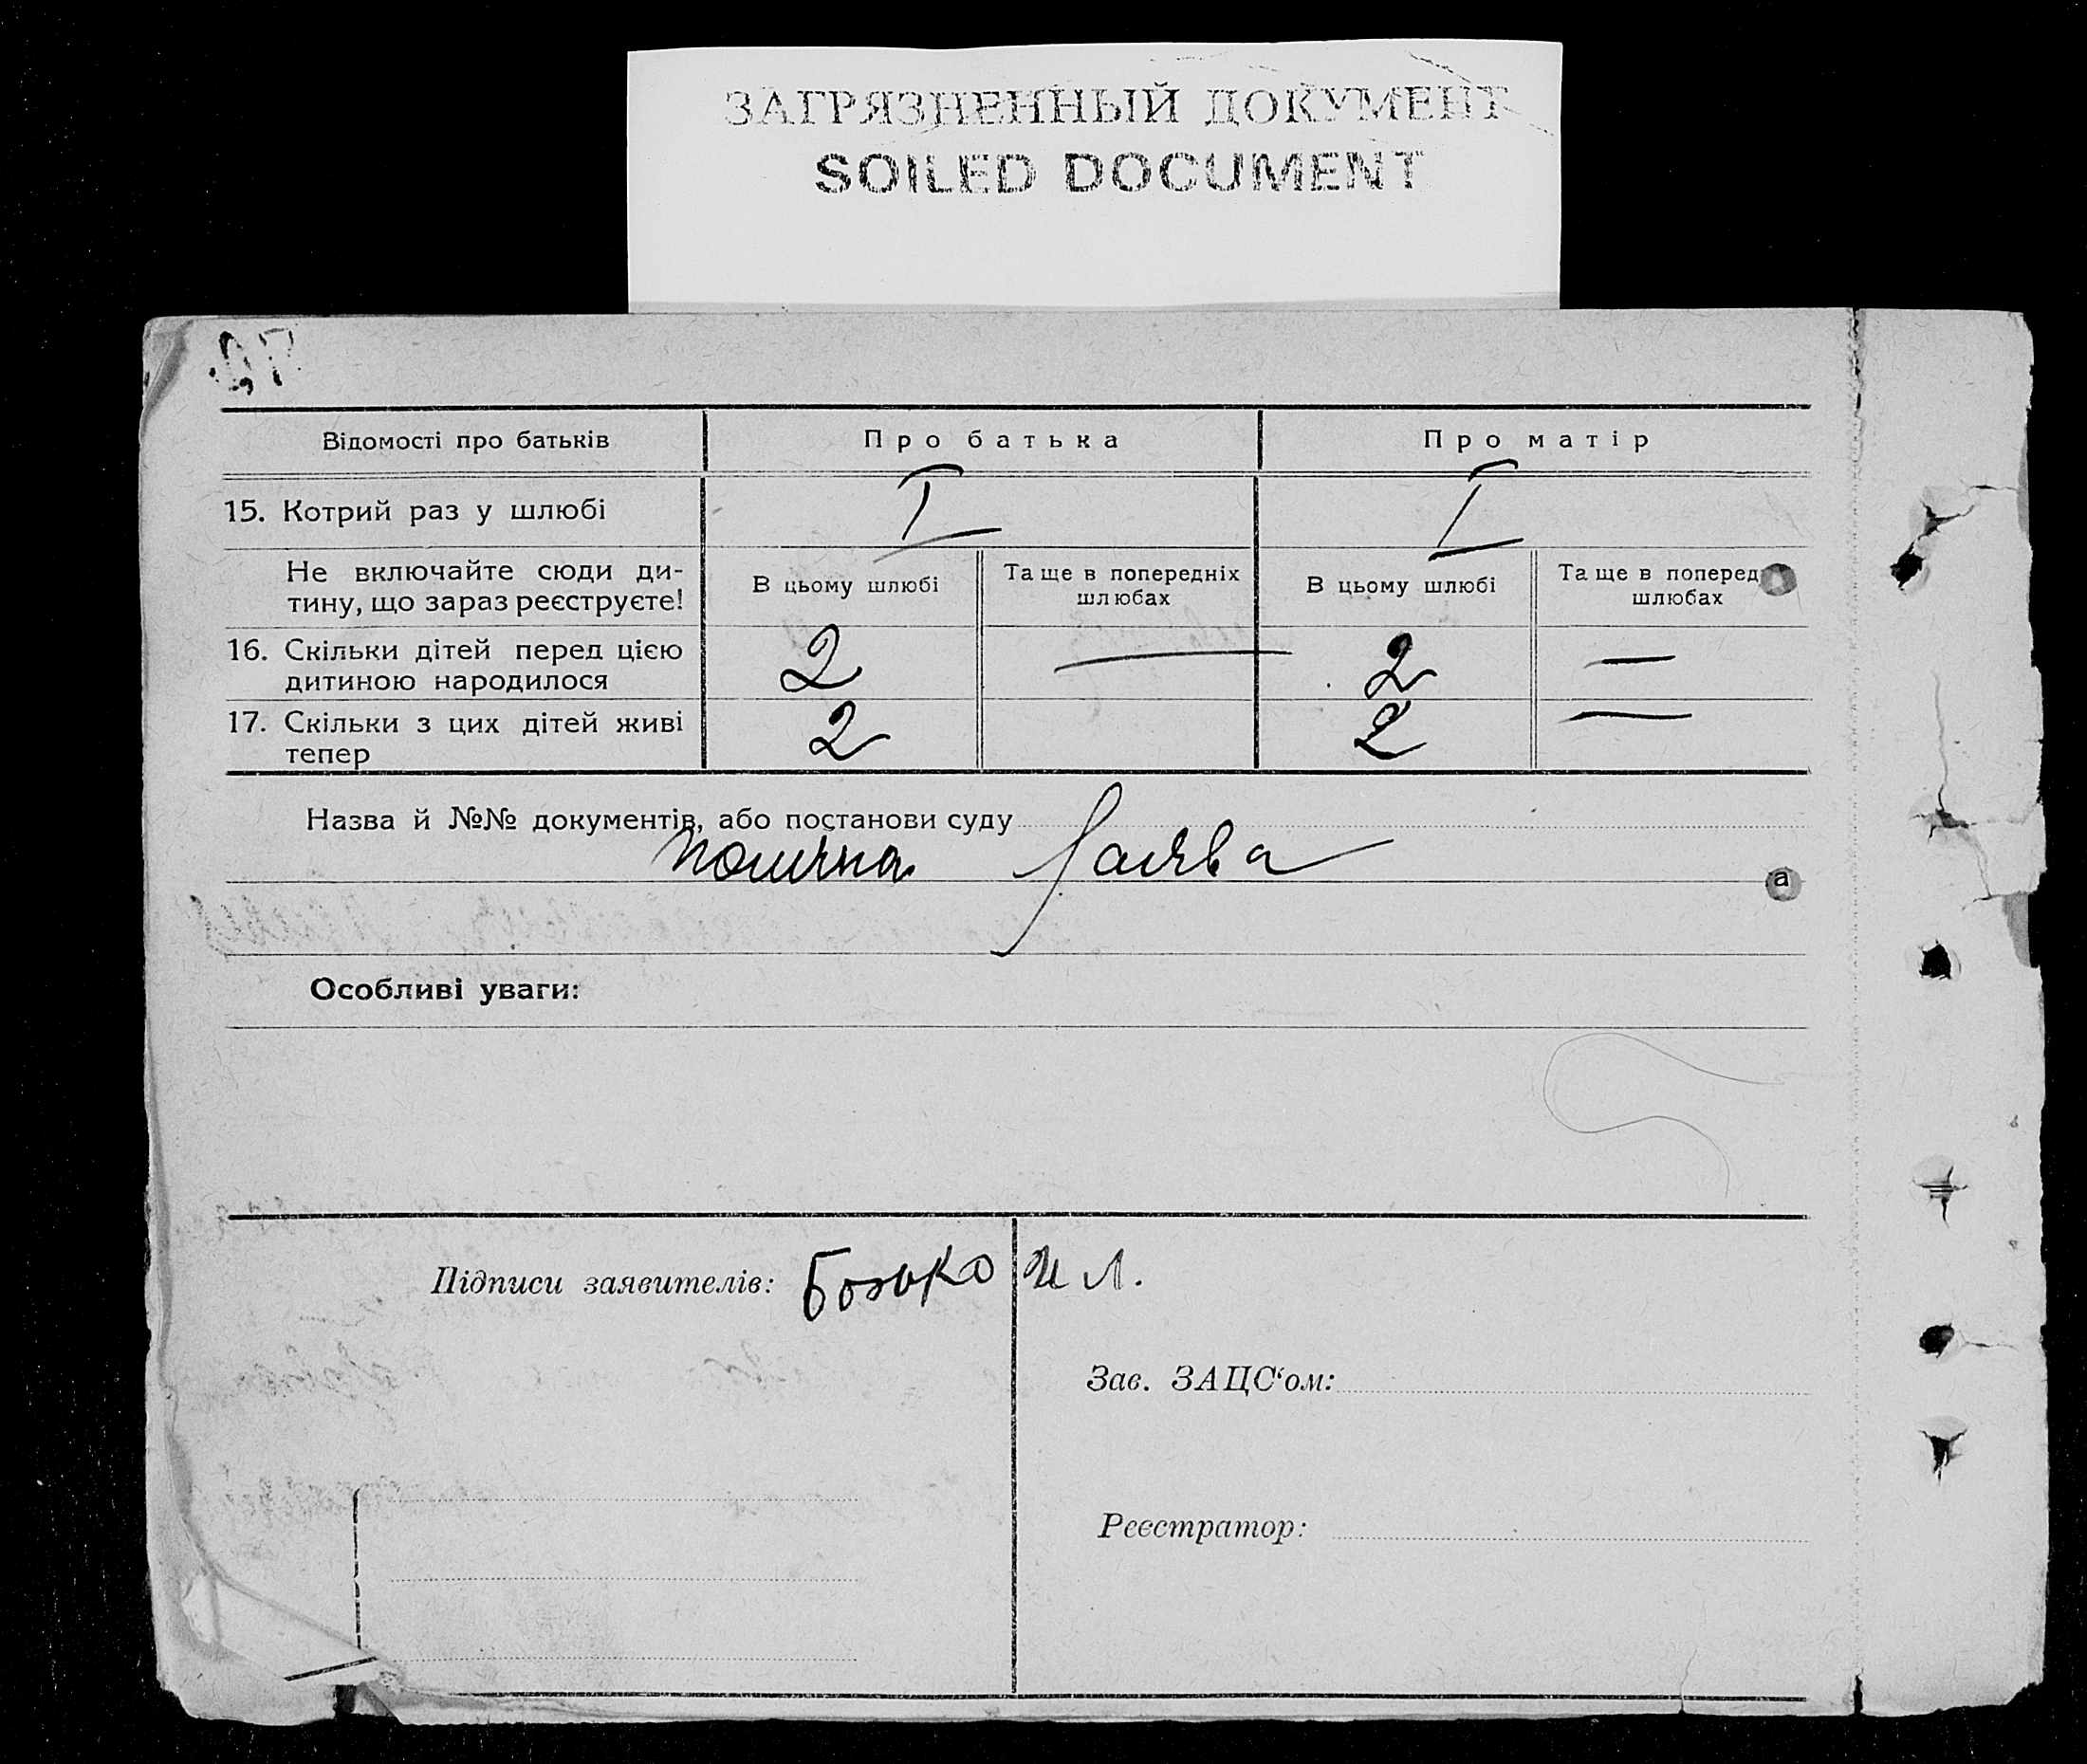 ЗАГРЯЗНЕННЫЙ ДОКУМЕНТ
SOILED DOCUMENT
Відомості про батьків Про батька Про матір
15. Котрий раз у шлюбі I I
Не включайте сюди ди-
тину, що зараз реєструєте!
В цьому шлюбі Та ще в попередніх шлюбах В цьому шлюбі Та ще в поперед шлюбах
16. Скільки дітей перед цією
дитиною народилося 2 — 2 —
17. Скільки з цих дітей живі
тепер 2 2 —
Назва й №№ документів, або постанови суду
заява
а
Особливі уваги:
Підписи заявителів: И Л.
Зав. ЗАЦС‘ом:
Реєстратор: